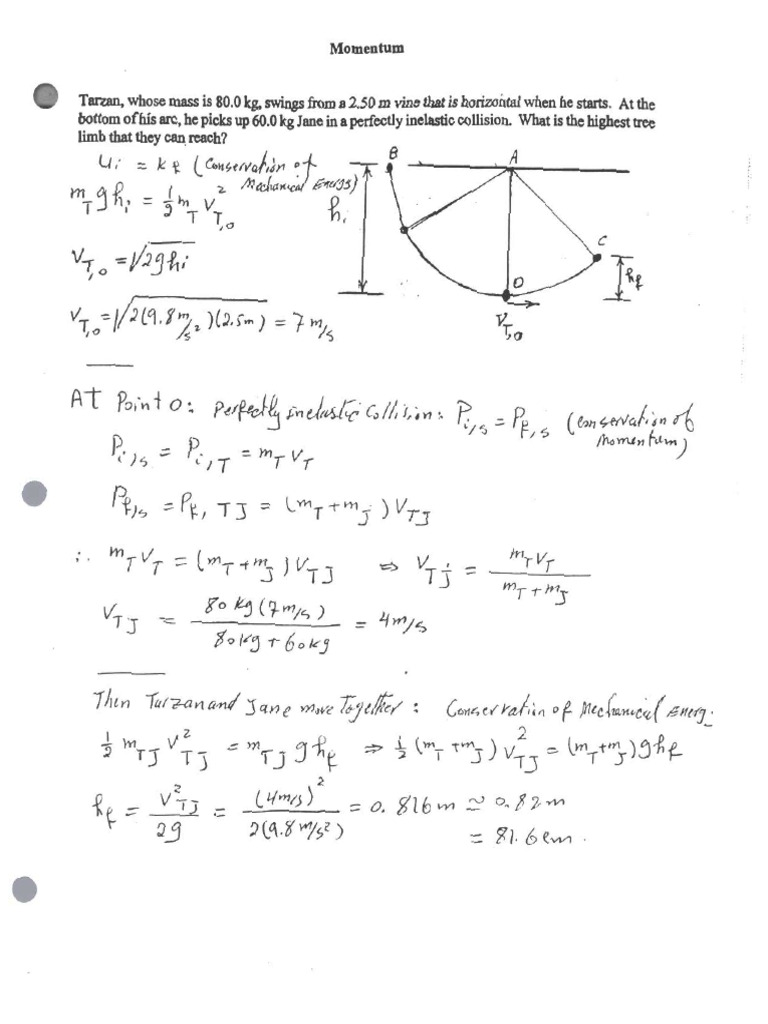 Momentum
Tarzan, whose mass is 80.0 kg, swings from a 2.50 m vine that is horizontal when he starts. At the
bottom of his arc, he picks up 60.0 kg Jane in a perfectly inelastic collision. What is the highest tree
limb that they can reach?
Ui = Kf (Conservation of
Mechanical Energy)
m_T g hi = 1/2 m_T V²_T,o
V_T,o = √2ghi
V_T,o = √2(9.8 m/s²)(2.5m) = 7 m/s
B
A
hi
C
hf
O
V_T,o
At Point O: Perfectly inelastic Collision: P_i,s = P_f,s (conservation of
momentum)
P_i,s = P_i,T = m_T V_T
P_f,s = P_f,TJ = (m_T + m_J) V_TJ
∴ m_T V_T = (m_T + m_J) V_TJ ⇔ V_TJ = m_T V_T / m_T + m_J
V_TJ = 80 kg (7 m/s) / 80kg + 60kg = 4 m/s
Then Tarzan and Jane move Together: Conservation of Mechanical Energ.
1/2 m_TJ V²_TJ = m_TJ g hf ⇒ 1/2 (m_T + m_J) V²_TJ = (m_T + m_J) g hf
hf = V²_TJ / 2g = (4 m/s)² / 2(9.8 m/s²) = 0.816 m ≃ 0.82 m
= 81.6 cm.